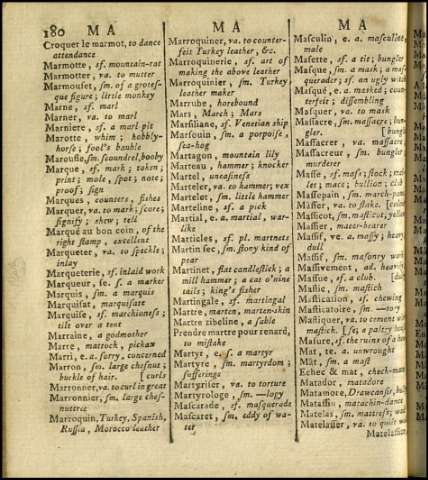 180 M A
M A
M A
Croquer le marmot, to dance
attendance
Marmotte, sf. mountain-rat
Marmotter, va. to mutter
Marmouset, sm. of a grotes-
que figure; little monkey
Marne, sf. marl
Marner, va. to marl
Marniere, sf. a marl pit
Marotte, whim; hobbly-
horse; fool's bauble
Maroufle, sm. scoundrel, booby
Marque, sf. mark; token;
print; mole, spot; note;
proof; sign
Marques, counters, fishes
Marquer, va. to mark; score;
signify; shew; tell
Marqué au bon coin, of the
right stamp, excellent
Marqueter, va. to speckle;
inlay
Marqueterie, sf. inlaid work
Marqueur, se. s. a marker
Marquis, sm. a marquis
Marquisat, marquisate
Marquise, sf. marchioness;
tilt over a tent
Marraine, a godmother
Marre, mattock, pickax
Marri, e. a. sorry, concerned
Marron, sm. large chesnut;
buckle of hair. [curls
Marronner, va. to curl in great
Marronnier, sm. large ches-
nuttree
Marroquin, Turkey, Spanish,
Russia, Morocco leather
Marroquiner, va. to counter-
feit Turkey leather, &c.
Marroquinerie, sf. art of
making the above leather
Marroquinier, sm. Turkey
leather maker
Marrube, horehound
Mars, March; Mars
Marsiliane, sf. Venetian ship
Marsouin, sm. a porpoise,
sea-hog
Martagon, mountain lily
Marteau, hammer; knocker
Martel, uneasiness
Marteler, va. to hammer; vex
Martelet, sm. little hammer
Marteline, sf. a pick
Martial, e. a. martial, war-
like
Marticles, sf. pl. martnets
Martin sec, sm. stony kind of
pear
Martinet, flat candlestick; a
mill hammer; a cat o'nine
tails; king's fisher
Martingale, sf. martingal
Martre, marten, marten-skin
Martre zibeline, a sable
Prendre martre pour renard,
to mistake
Martyr, e. s. a martyr
Martyre, sm. martyrdom;
sufferings
Martyriser, va. to torture
Martyrologe, sm. —logy
Mascarade, sf. masquerade
Mascaret, sm. eddy of wa-
ter
Masculin, e. a. masculine,
male
Masette, sf. a tit; bungler
Masque, sm. a mask; a mas-
querader; sf. an ugly
Masqué, e. a. masked; coun-
terfeit; dissembling
Masquer, va. to mask
Massacre, sm. massacre; bun-
gler. [bungl
Massacrer, va. massacre
Massacreur, sm. bungler
murderer
Masse, sf. mass; stock; mal-
let; mace; bullion;
Massepain, sm. march-pane
Masser, va. to stake. [colour
Massicot, sm. massicot, yellow
Massier, mace-bearer
Massif, ve. a. massy; heavy
dull
Massif, sm. masonry work
Massivement, ad. heavily
Massue, sf. a club.
Mastic, sm. mastich
Mastication, sf. chewing
Masticatoire, sm. —to y
Mastiquer, va. to cement with
mastich. [se; a paltry
Masure, sf. the ruins of a
Mat, te. a. unwrought
Mât, sm. a mast
Echec & mat, check-mate
Matador, matadore
Matamore, Drawcansir, bully
Matassin, matachin-dance
Matelas, sm. mattress; wad
Matelasser, va. to quilt
Matelasser